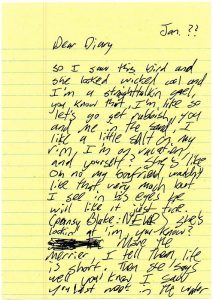 Jan. ??
Dear Diary
So I saw this bird and
she looked wicked cool and
I'm a straight talkin gal,
you know that. I'm like so
let's go get rubbish, you
and me in the sand. I
like a little salt on my
rim. I'm on vacation
and yourself? She's like
oh no my boyfriend wouldn't
like that very much but
I see in his eyes he
will like it just fine.
she's
lookin at 'im, you know?
the
merrier I tell them, life
is short. Then he says
well you know I
in the